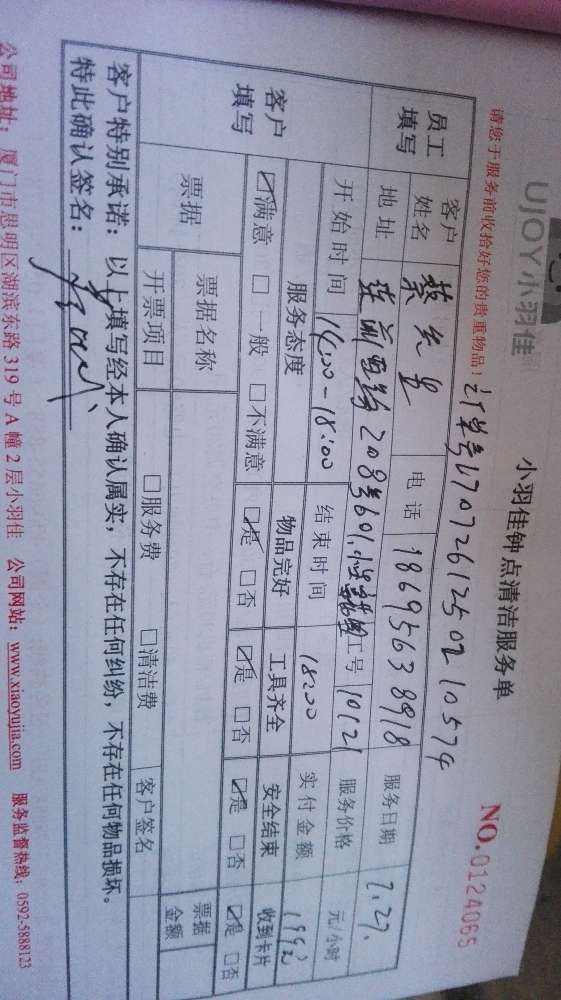 UJOY小羽佳
小羽佳钟点清洁服务单
NO.0124065
请您于服务前收拾好您的贵重物品！ 订单号1707261250210574
员工填写
客户姓名 蔡先生 电话 18695638918 服务日期 7.27.
地址 208号601. 工号 10121 服务价格 元/小时
开始时间 14:00-18:00 结束时间 18:00 实付金额 199.2
客户填写
服务态度 物品完好 工具齐全 安全结束 收到卡片
☑满意 □一般 □不满意 ☑是 □否 ☑是 □否 ☑是 □否 ☑是 □否
票据 票据名称 票据金额
开票项目 □服务费 □清洁费 客户签名
客户特别承诺：以上填写经本人确认属实，不存在任何纠纷，不存在任何物品损坏。
特此确认签名：
公司地址：厦门市思明区湖滨东路319号A幢2层小羽佳 公司网站：www.xiaoyujia.com 服务监督热线：0592-5888123